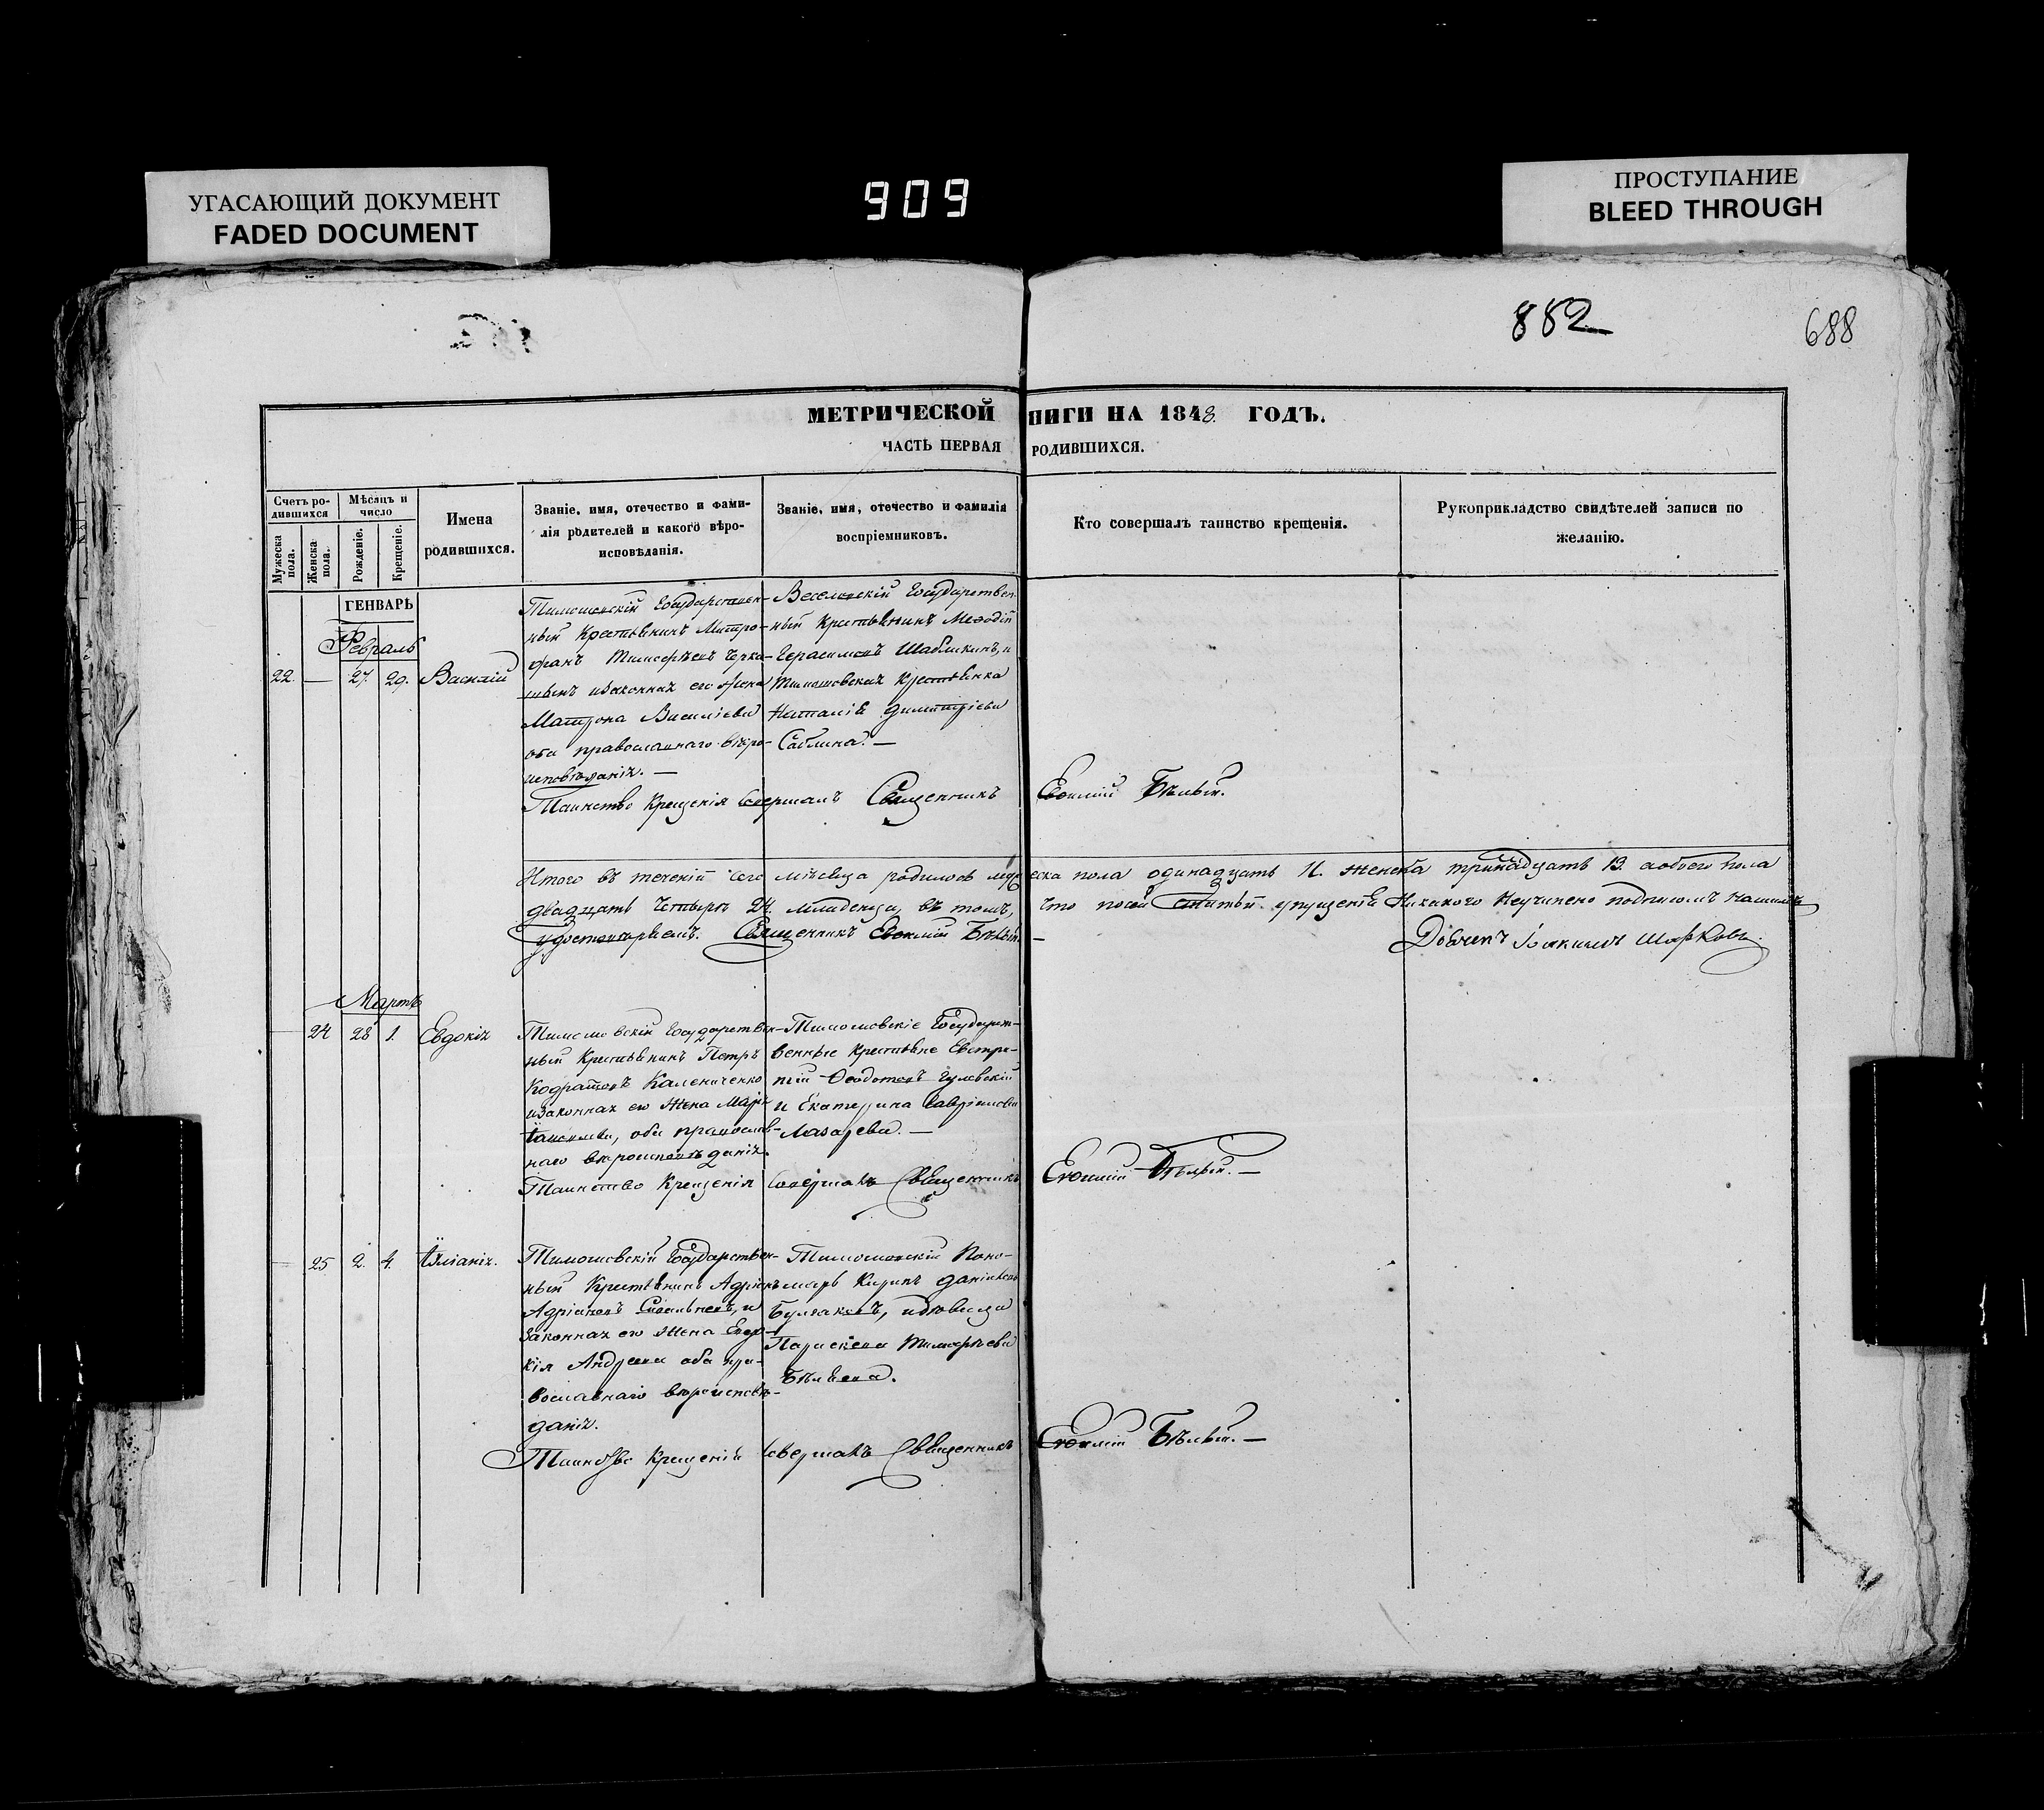 УГАСАЮЩИЙ ДОКУМЕНТ
FADED DOCUMENT
909
ПРОСТУПАНИЕ
BLEED THROUGH
882
688
МЕТРИЧЕСКОЙ НИГИ НА 1848 ГОДЪ.
ЧАСТЬ ПЕРВАЯ РОДИВШИХСЯ.
Счетъ ро-
дившихся
Мѣсяцъ и
число
Мужеска
пола.
Женска
пола.
Рожденіе.
Крещеніе.
Имена
родившихся.
Званіе, имя, отечество и фами-
лія родителей и какого вѣро-
исповѣданія.
Званіе, имя, отечество и фамилія
воспріемниковъ.
Кто совершалъ таинство крещенія.
Рукоприкладство свидѣтелей записи по
желанію.
ГЕНВАРЬ
Февраль
22. — 27. 29. Василій
Тимошевскій Государствен-
ный Крестьянинъ Митро-
фанъ Тимофѣевъ Черка-
шинъ изаконная его жена
Матрона Василіева
оба православнаго вѣро-
исповѣданія. —
Веселовскій Государствен-
ный Крестьянинъ Меѳодій
Герасимовъ Шабликинъ, и
Тимошевская Крестьянка
Наталія Димитріева
Саблина. —
Таинство Крещенія Совершалъ Священникъ Евѳимій Бѣлый.
Итого въ теченіи сего мѣсяца родилось мужеска пола одинадцать 11. женска тринадцать 13. аобоего пола
двадцать четыре 24. младенца, въ томъ, что посей статьи упущенія Никакого Неучинено подписомъ нашимъ
удостовѣряемъ. Священникъ Евѳимій Бѣлый. —
Дьячекъ Іоакимъ Шарковъ.
Мартъ
— 24 28 1. Евдокія
Тимошовскій Государствен-
ный Крестьянинъ Петръ
Кодратовъ Калениченко
изаконная его жена Марѳа
оба православ-
наго вѣроисповѣданія.
Тимошовскіе Государст-
венные Крестьяне Евстра-
тій Ѳеодотовъ Гулевскій
и Екатерина Гавріилова
Лазарева. —
Таинство Крещенія Совершалъ Священникъ Евѳимій Бѣлый. —
— 25 2. 4. Іуліанія.
Тимошовскій Государствен-
ный Крестьянинъ Адріанъ
Адріановъ и
законная его жена Евдо-
кія Андреева оба пра-
вославнаго вѣроисповѣ-
данія.
Тимошовскій Поно-
марь Кирилъ Даніиловъ
Булгаковъ, идѣвица
Параскева Тимофѣева
Бѣляева.
Таинство Крещенія Совершалъ Священникъ Евѳимій Бѣлый. —